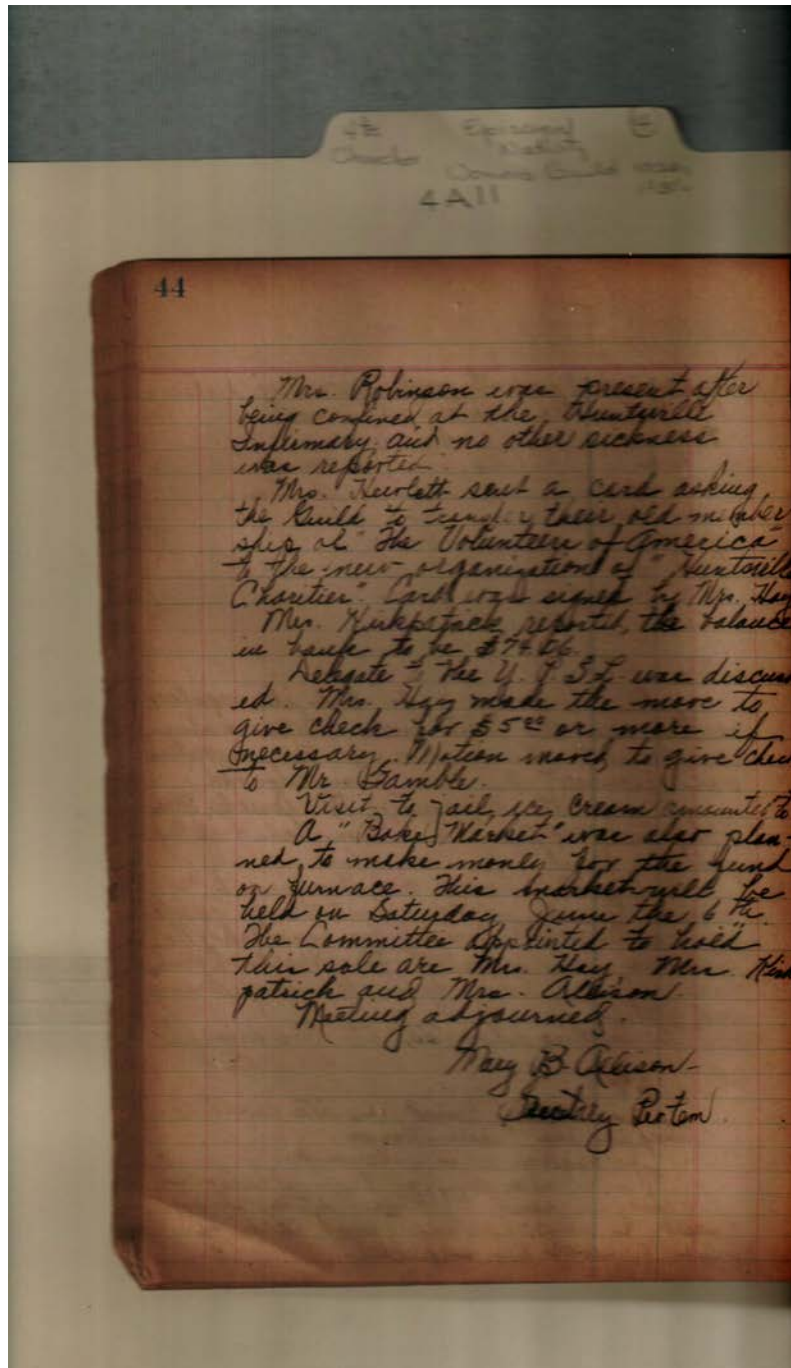 4A11
44
Mrs. Robinson was present after
being confined at the Huntsville
Infirmary and no other sickness
was reported.
Mrs. Hewlett sent a card asking
the Guild to transfer their old member
ship of "The Volunteers of America"
to the new organization of "Huntsville
Charities". Card was signed by Mrs. Hay
Mrs. Kirkpatrick reported, the balance
in bank to be
Delegate to the Y. P. S. L. was discuss
ed. Mrs. Hay made the move to
give check for $5.00 or more if
necessary. Motion moved, to give chec
to Mr Gamble.
Visit to jail, ice cream amounted to
A "Bake Market" was also plan-
ned, to make money for the fund
on furnace. This market will be
held on Saturday June the 6th.
The Committee appointed to hold
this sale are Mrs. Hay, Mrs. Kirk
patrick and Mrs. Allison.
Meeting adjourned.
Mary B Allison